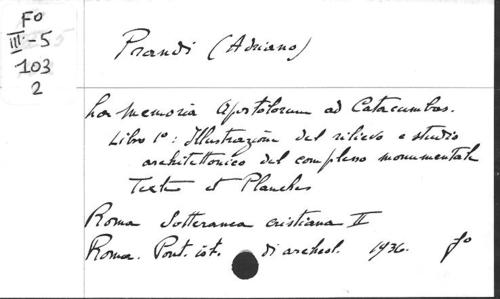 Fo
III-5
103
2
Prandi (Adriano)
La Memoria Apostolorum ad Catacumbas.
Libro 1º: Illustrazione del rilievo e studio
architettonico del complesso monumentale
Texte et Planches
Roma Sotteranea cristiana II
Roma. Pont. ist. di archeol. 1936. fo